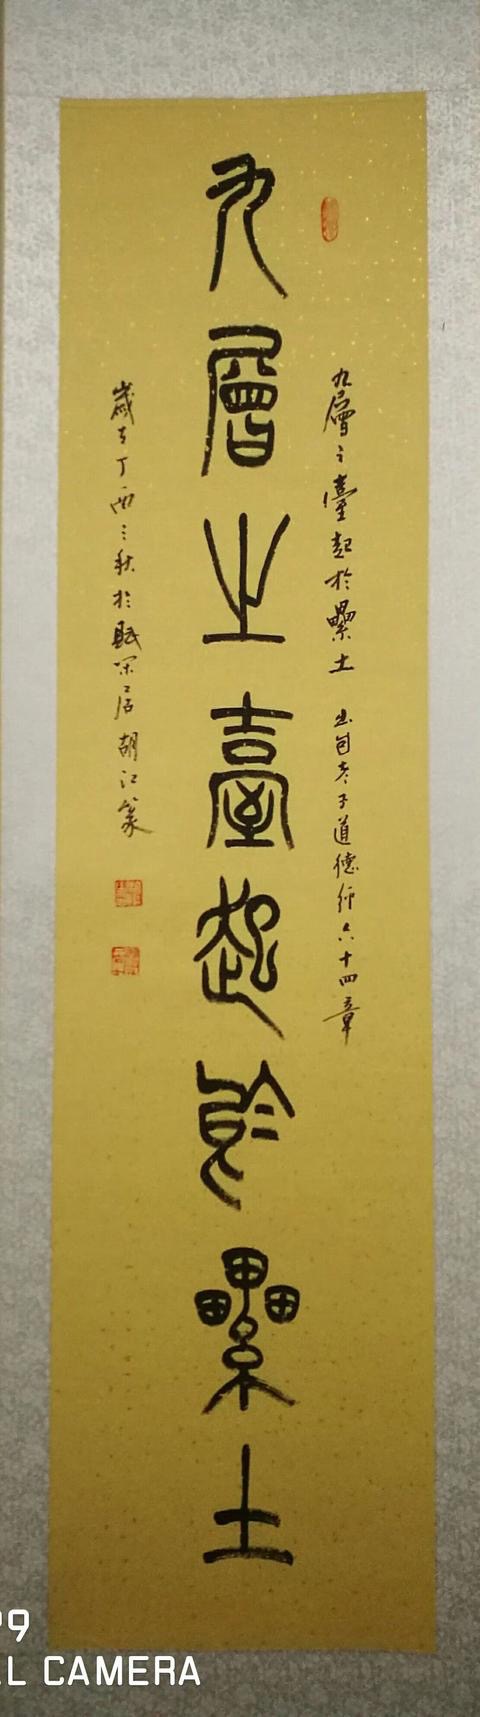 九層之臺起於纍土 出自老子道德經六十四章
九層之臺起於纍土
歲在丁酉之秋於居胡江篆
9
L CAMERA